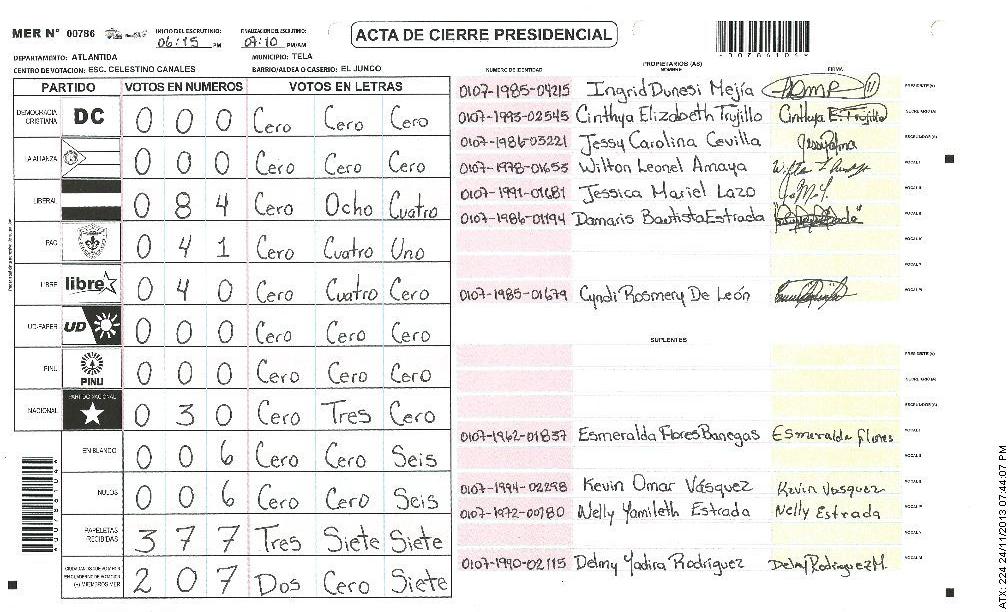 MER Nº 00786
INICIO DEL ESCRUTINIO: 06:15 PM
FINALIZACION DEL ESCRUTINIO: 07:10 PM/AM
ACTA DE CIERRE PRESIDENCIAL
DEPARTAMENTO: ATLANTIDA
MUNICIPIO: TELA
CENTRO DE VOTACION: ESC. CELESTINO CANALES
BARRIO/ALDEA O CASERIO: EL JUNCO
PARTIDO VOTOS EN NUMEROS VOTOS EN LETRAS
DEMOCRACIA CRISTIANA DC 0 0 0 Cero Cero Cero
LA ALIANZA 0 0 0 Cero Cero Cero
LIBERAL 0 8 4 Cero Ocho Cuatro
PAC 0 4 1 Cero Cuatro Uno
LIBRE libre 0 4 0 Cero Cuatro Cero
UD-FAPER UD 0 0 0 Cero Cero Cero
PINU PINU 0 0 0 Cero Cero Cero
NACIONAL PARTIDO NACIONAL 0 3 0 Cero Tres Cero
EN BLANCO 0 0 6 Cero Cero Seis
NULOS 0 0 6 Cero Cero Seis
PAPELETAS RECIBIDAS 3 7 7 Tres Siete Siete
2 0 7 Dos Cero Siete
NUMERO DE IDENTIDAD
PROPIETARIOS (AS)
NOMBRE
FIRMA
0107-1985-04215 Ingrid Dunesi Mejía
0107-1993-02545 Cinthya Elizabeth Trujillo Cinthya E. Trujillo
0107-1986-03221 Jessy Carolina Cevilla
0107-1978-01655 Wilton Leonel Amaya
0107-1991-01681 Jessica Mariel Lazo
0107-1986-01194 Damaris Bautista Estrada
0107-1985-01679 Cyndi Rosmery De León
SUPLENTES
0107-1962-01837 Esmeralda Flores Banegas Esmeralda flores
0107-1994-02298 Kevin Omar Vásquez Kevin Vasquez
0107-1972-00780 Nelly Yamileth Estrada Nelly Estrada
0107-1990-02115 Delmy Yadira Rodriguez Delmy Rodriguez M.
ATX: 224 24/11/2013 07:44:07 PM